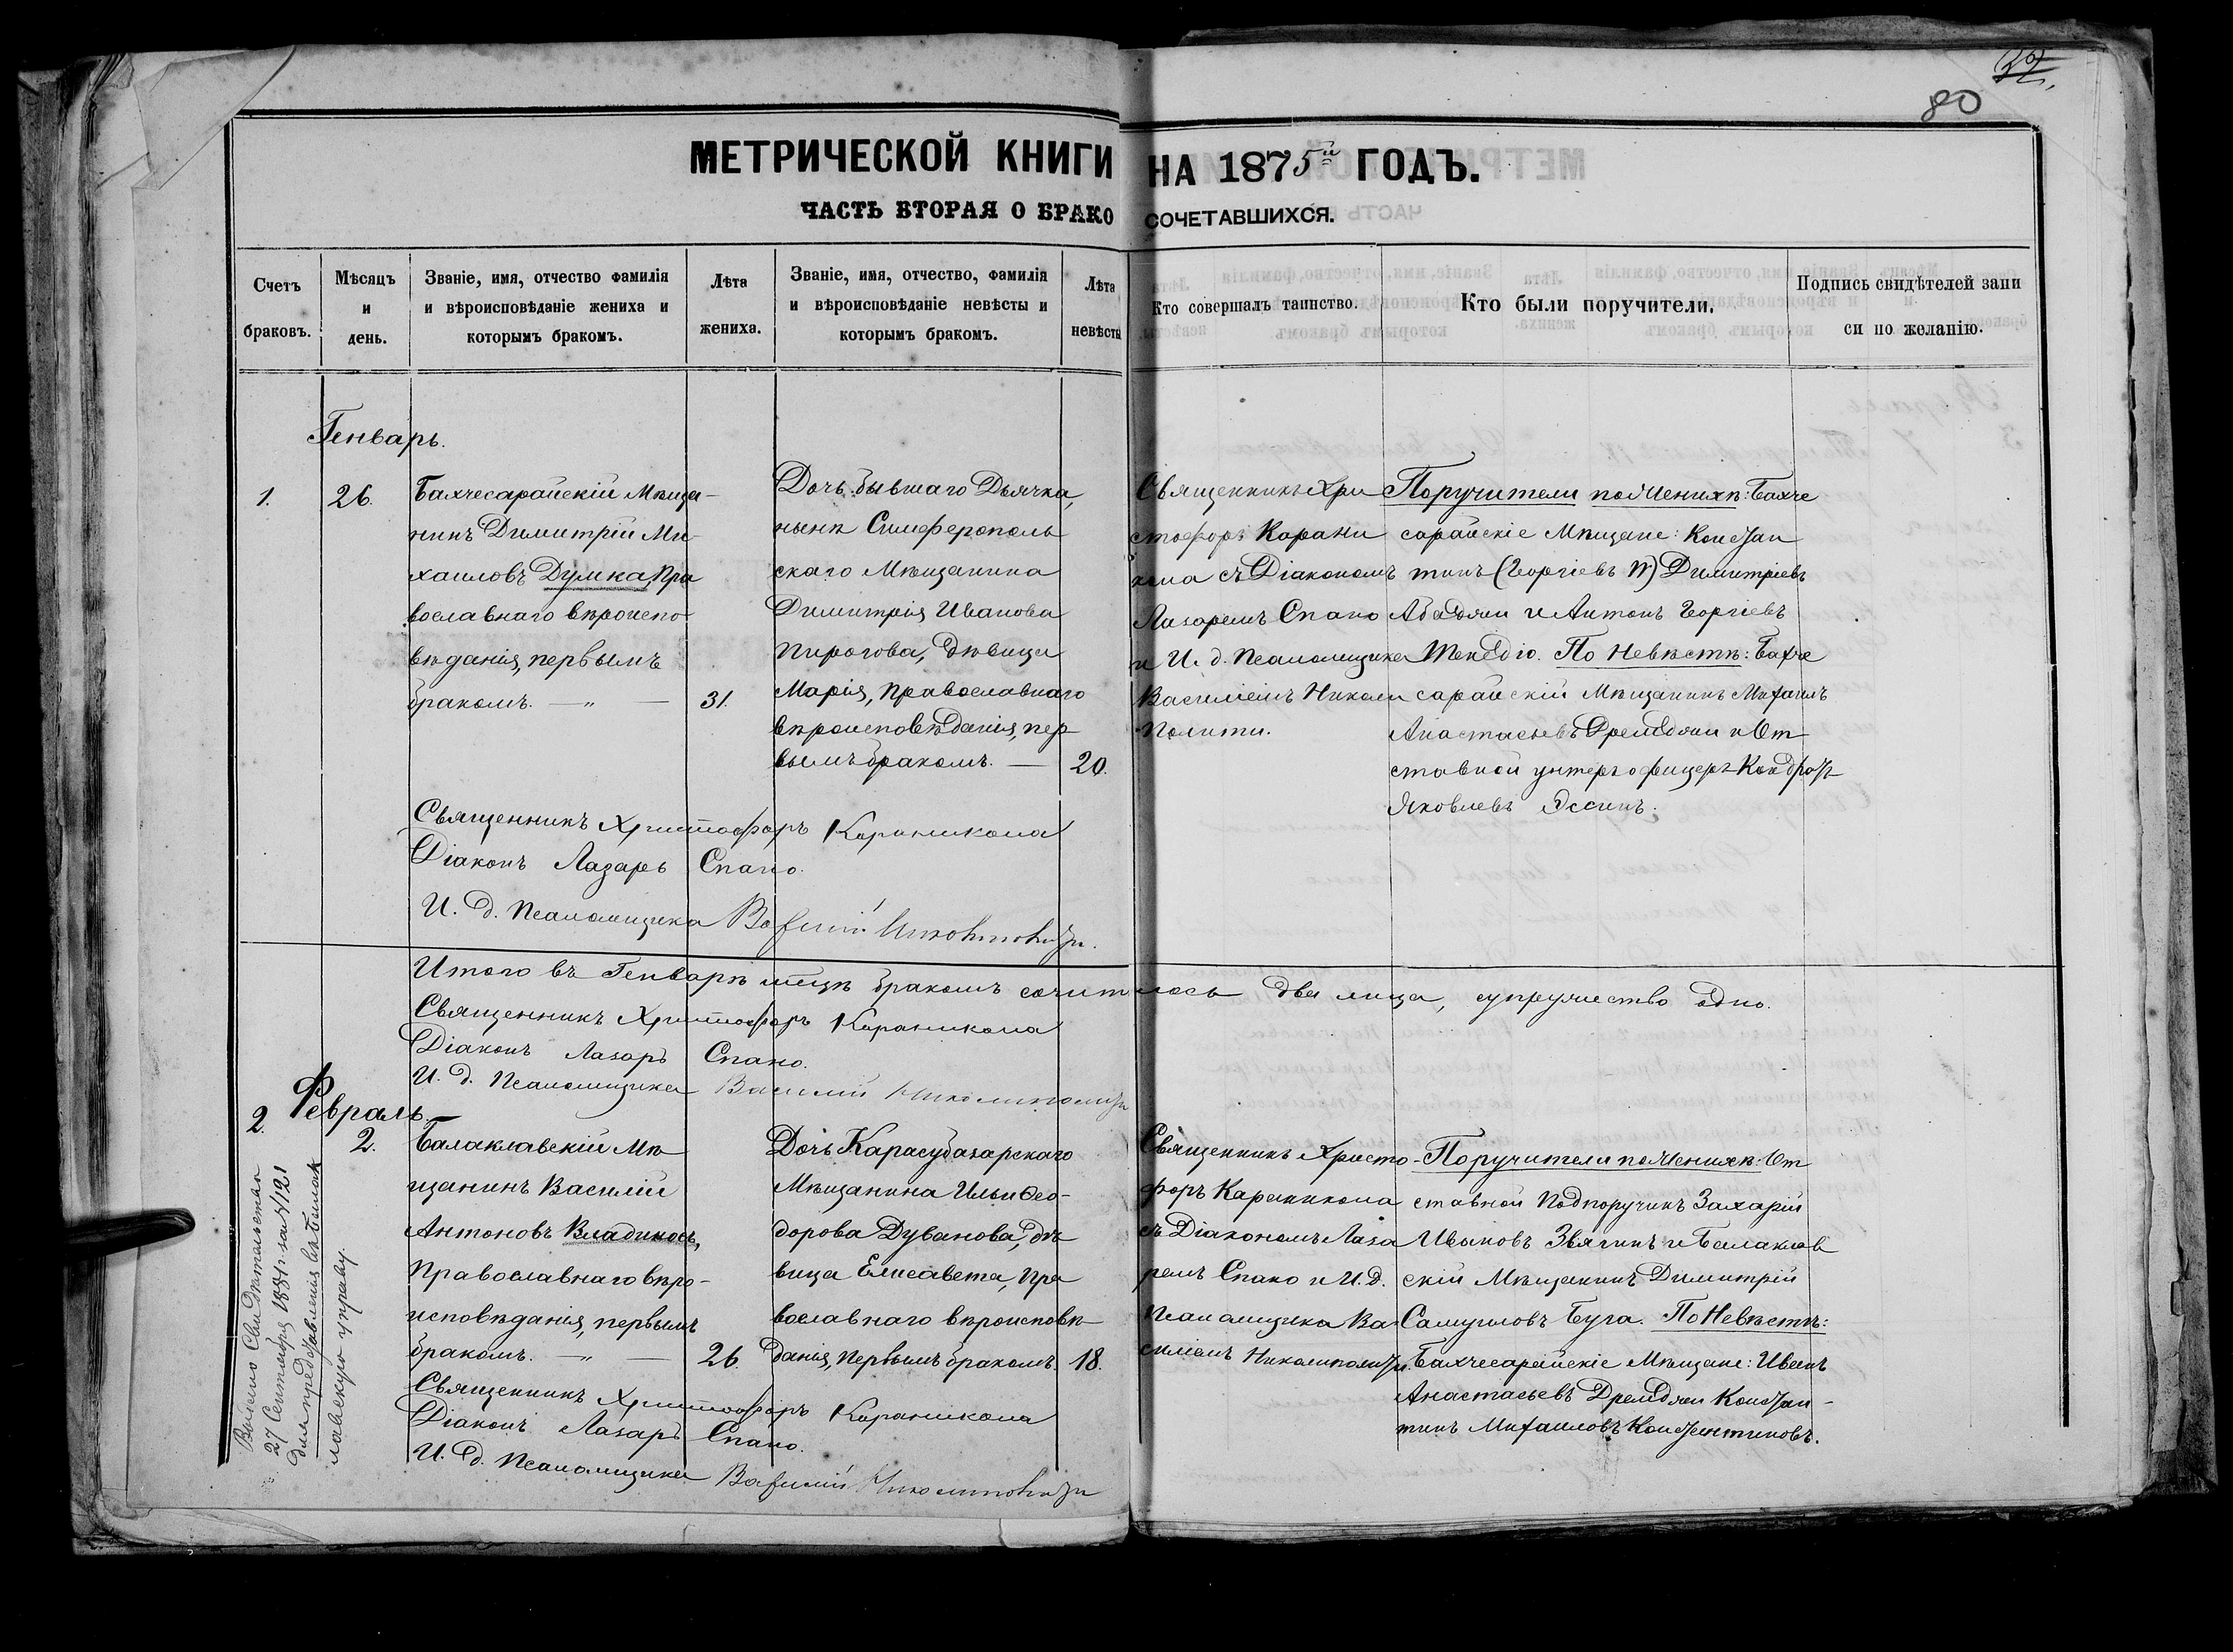 32.
80
МЕТРИЧЕСКОЙ КНИГИ НА 1875й ГОДЪ.
ЧАСТЬ ВТОРАЯ О БРАКОСОЧЕТАВШИХСЯ.
Счетъ браковъ.
Мѣсяцъ и день.
Званіе, имя, отчество фамилія
и вѣроисповѣданіе жениха и
которымъ бракомъ.
Лѣта жениха.
Званіе, имя, отчество, фамилія
и вѣроисповѣданіе невѣсты и
которымъ бракомъ.
Лѣта невѣсты
Кто совершалъ таинство.
Кто были поручители.
Подпись свидѣтелей запи
си по желанію.
Генварь.
1.
26.
Бахчесарайскій Мѣща-
нинъ Димитрій Ми-
хаиловъ Думка, Пра
вославнаго вѣроиспо-
вѣданія, первымъ
бракомъ. — „ — 31.
Дочь бывшаго Дьячка,
нынѣ Симферополь
скаго Мѣщанина
Димитрія Иванова
Пирогова, дѣвица
Марія, Православнаго
вѣроисповѣданія, пер-
вымъ бракомъ. — 20.
Священникъ Хри
стофоръ Карани
кола съ Діакономъ
Лазаремъ Спано
и И. д. Псаломщика
Василіемъ Николи
Полити.
Поручители по Женихѣ: Бахче
сарайскіе Мѣщане: Констан
тинъ (Георгіевъ тѫ) Димитріевъ
и Антонъ Георгіевъ
По Невѣстѣ: Бахче
сарайскій Мѣщанинъ Михаилъ
Анастасьевъ и От
ставной унтеръ офицеръ Кондрат
Яковлевъ Эссинъ.
Священникъ Христофоръ Караникола
Діаконъ Лазарь Спано.
И. д. Псаломщика Василій Николиполити.
Итого въ Генварѣ мѣцѣ бракомъ сочиталось два лица, супружество одно.
Священникъ Христофоръ Караникола
Діаконъ Лазаръ Спано.
И. д. Псаломщика Василій Николиполити
Февраль
2.
2.
Балаклавскій Мѣ
щанинъ Василій
Антоновъ Владикосъ,
Православнаго вѣро-
исповѣданія, первымъ
бракомъ. — „ — 26.
Дочь Карасубазарскаго
Мѣщанина Ильи Ѳео-
дорова Дуванова, дѣ
вица Елисавета, Пра
вославнаго вѣроисповѣ-
данія, первымъ бракомъ. 18.
Священникъ Христо-
форъ Караникола
съ Діакономъ Лаза
ремъ Спано и И. д.
Псаломщика Ва-
силіемъ Николиполити.
Поручители по Женихѣ: От
ставной Подпоручикъ Захарій
Ивановъ Звягинъ и Балаклав
скій Мѣщанинъ Димитрій
Самуиловъ Буга. По Невѣстѣ:
Бахчесарайскіе Мѣщане: Иванъ
Анастасьевъ Констан-
тинъ Михаиловъ Константиновъ.
Священникъ Христофоръ Караникола
Діаконъ Лазаръ Спано.
И. д. Псаломщика Василій Николиполити
Выдано Свидѣтельство
27 Сентября 1881 г. за №121
для предоставленія въ Балак
лавскую управу.